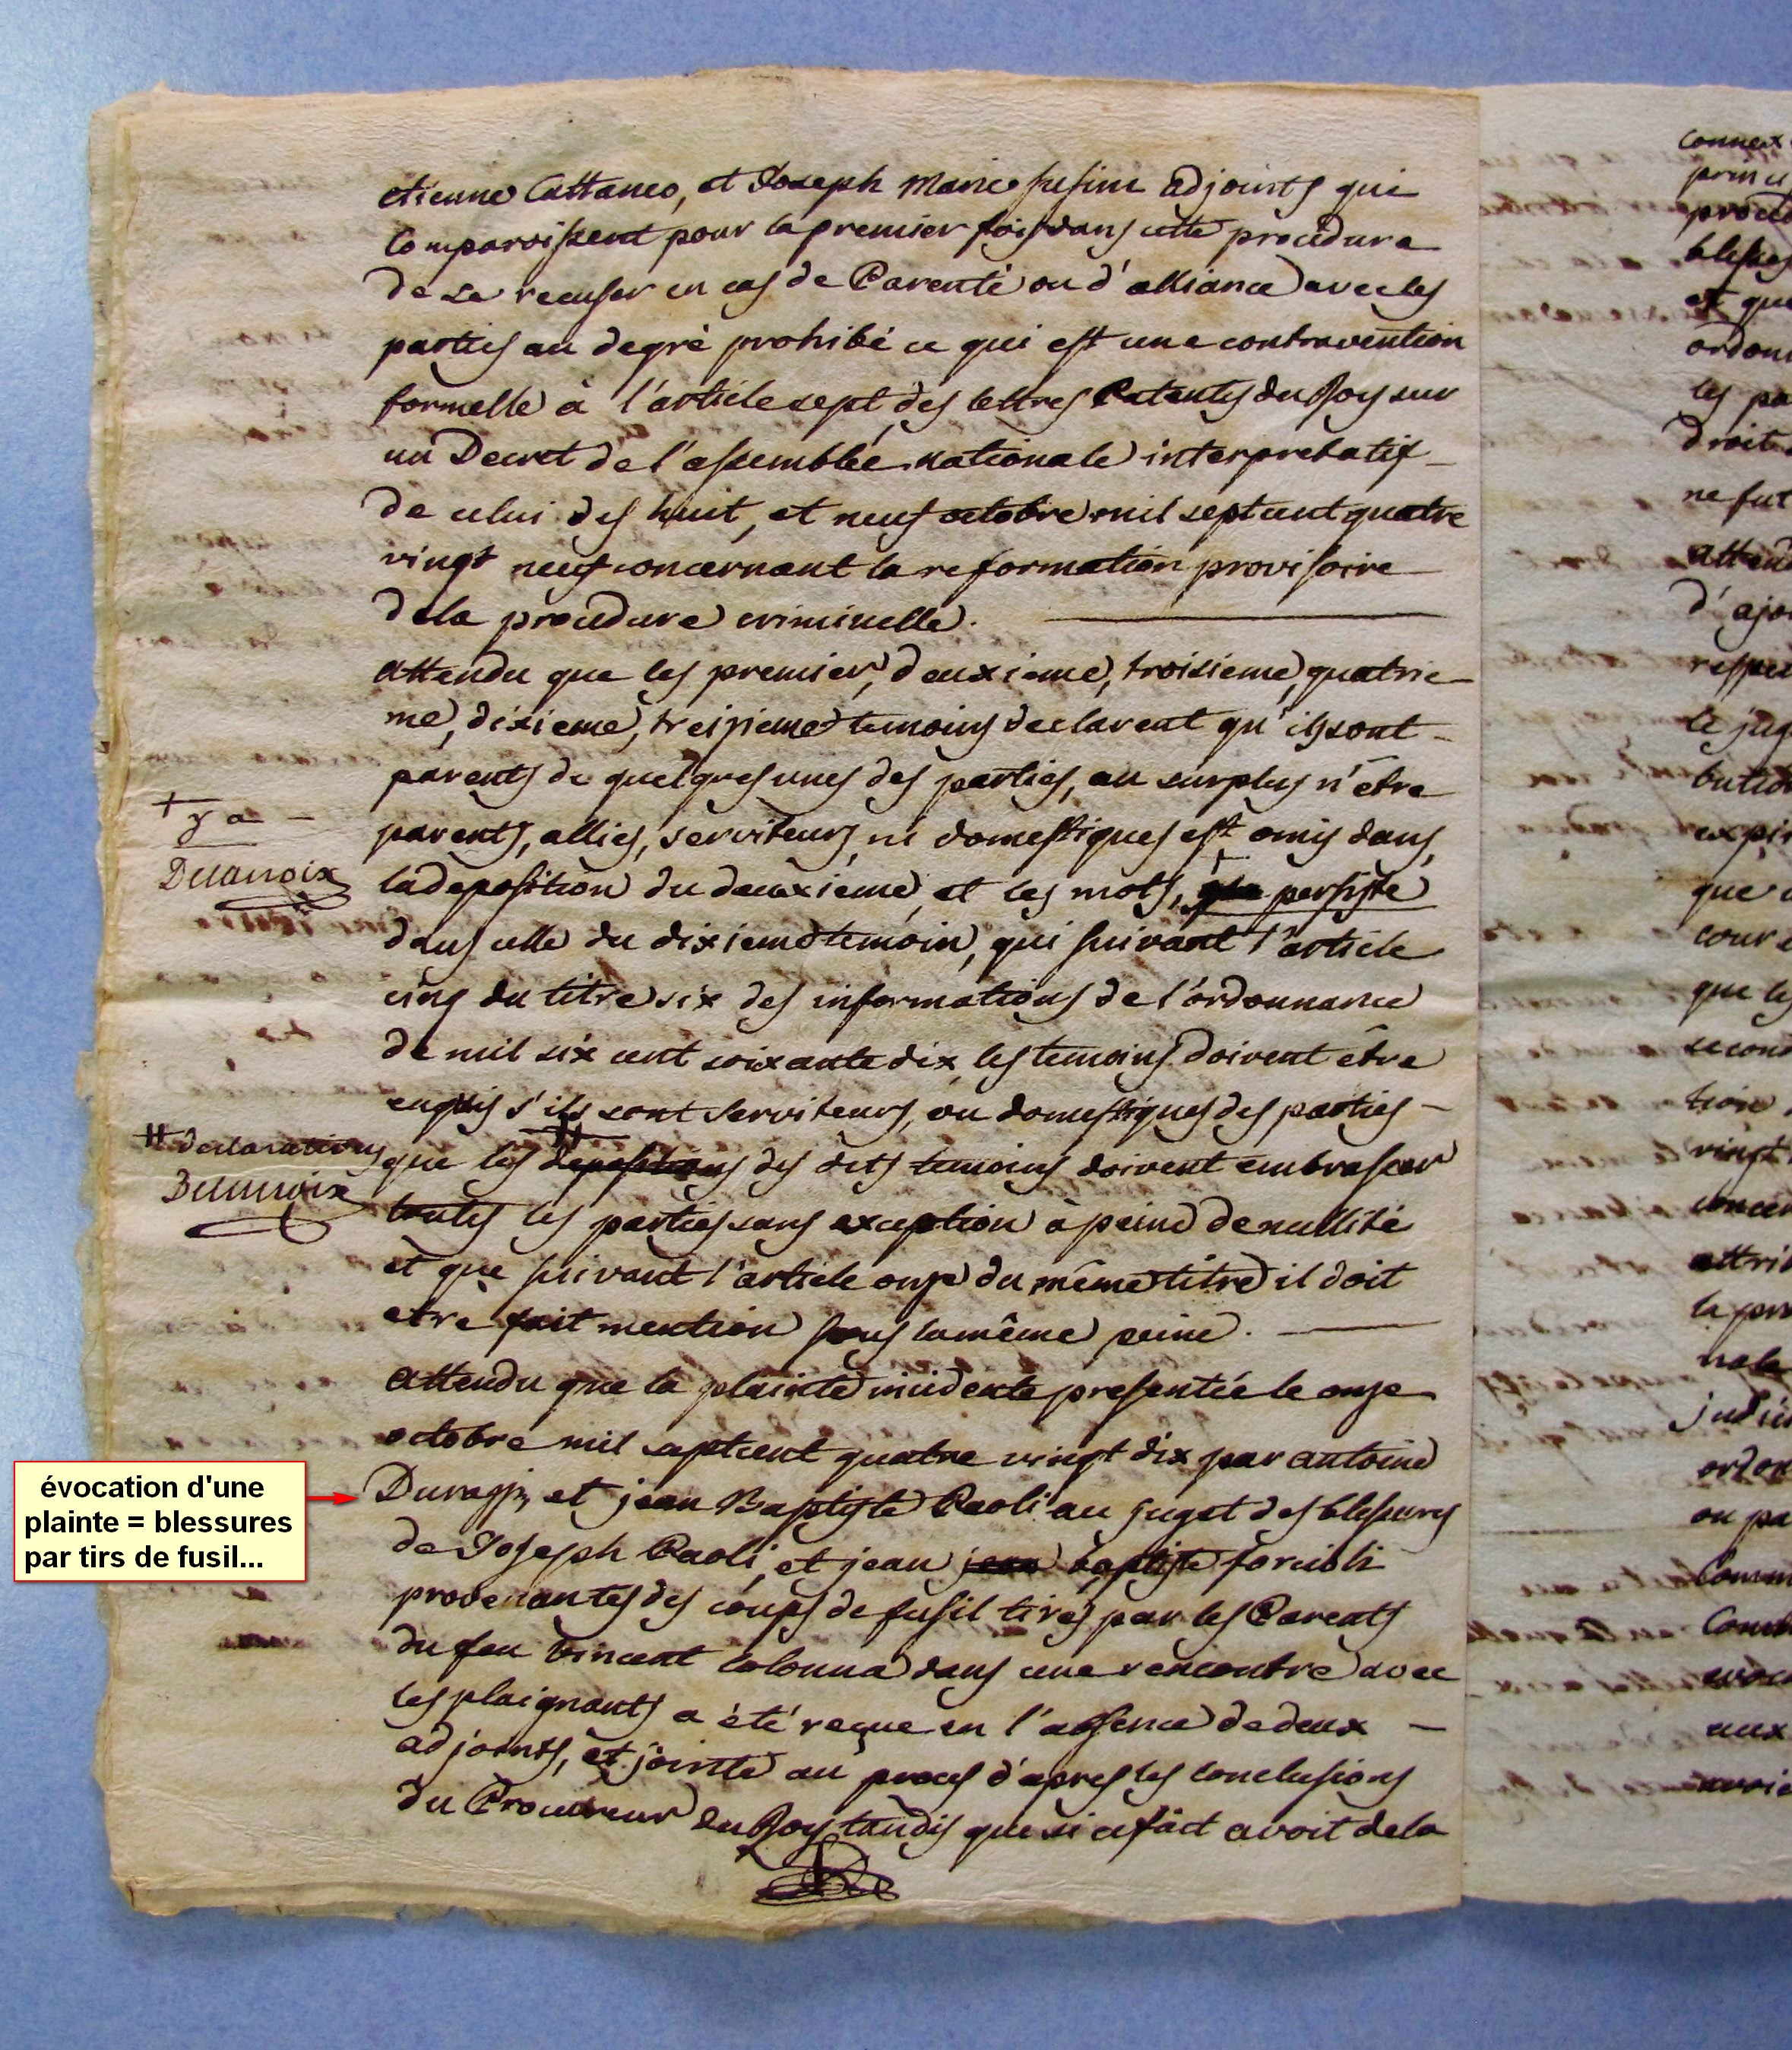 etienne Cattaneo, et Joseph Marie Susini adjoints qui
Comparoissent pour la premier fois dans cette procédure
de se recuser en cas de Parenté ou d'alliance avec les
parties au degré prohibé ce qui est une contravention
formelle à l'article sept des lettres Patentes du Roy sur
un Decret de l'assemblée nationale interpretatif
de celui des huit, et neuf octobre mil sept cent quatre
vingt neuf concernant la reformation provisoire
de la procedure criminelle.
attendu que les premier, deuxieme, troisieme, quatrie-
me, dixieme, treizieme temoins declarent qu'ils sont
parents de quelques unes des parties, au surplus n'être
parents, allies, serviteurs ni domestiques est omis dans
la deposition du deuxieme, et les mots, persiste
+ y a
Delanoix
dans celle du dixieme temoin, qui suivant l'article
cinq du titre six des informations de l'ordonnance
de mil six cent soixante dix, les temoins doivent être
enquis s'ils sont serviteurs, ou domestiques des parties
que les depositions des dits temoins doivent embrasser
# declarations
Delanoix
toutes les parties sans exception à peine de nullité
et que suivant l'article onze du même titre il doit
etre fait mention sous la même peine.
attendu que la plainte incidente presentée le onze
octobre mil sept cent quatre vingt dix par antoine
Durazzi, et jean Baptiste Paoli au sujet des blessures
de Joseph Paoli, et jean jean baptiste forcioli
provenantes des coups de fusil tirés par les Parents
du feu Vincent Colonna dans une rencontre avec
les plaignants a été reçue en l'absence de deux
adjoints, et jointe au procès d'apres les conclusions
du Procureur du Roy tandis que si ce fait avoit de la
évocation d'une
plainte = blessures
par tirs de fusil...
Connex
princi
procé
blesse
et que
ordon
les pa
droit
ne fut
attend
d'ajo
respec
le jug
bution
expir
que
cour
que les
second
tion
vingt
concer
attrib
la pro
nale
judic
ordon
ou pa
Comm
aux
avoie